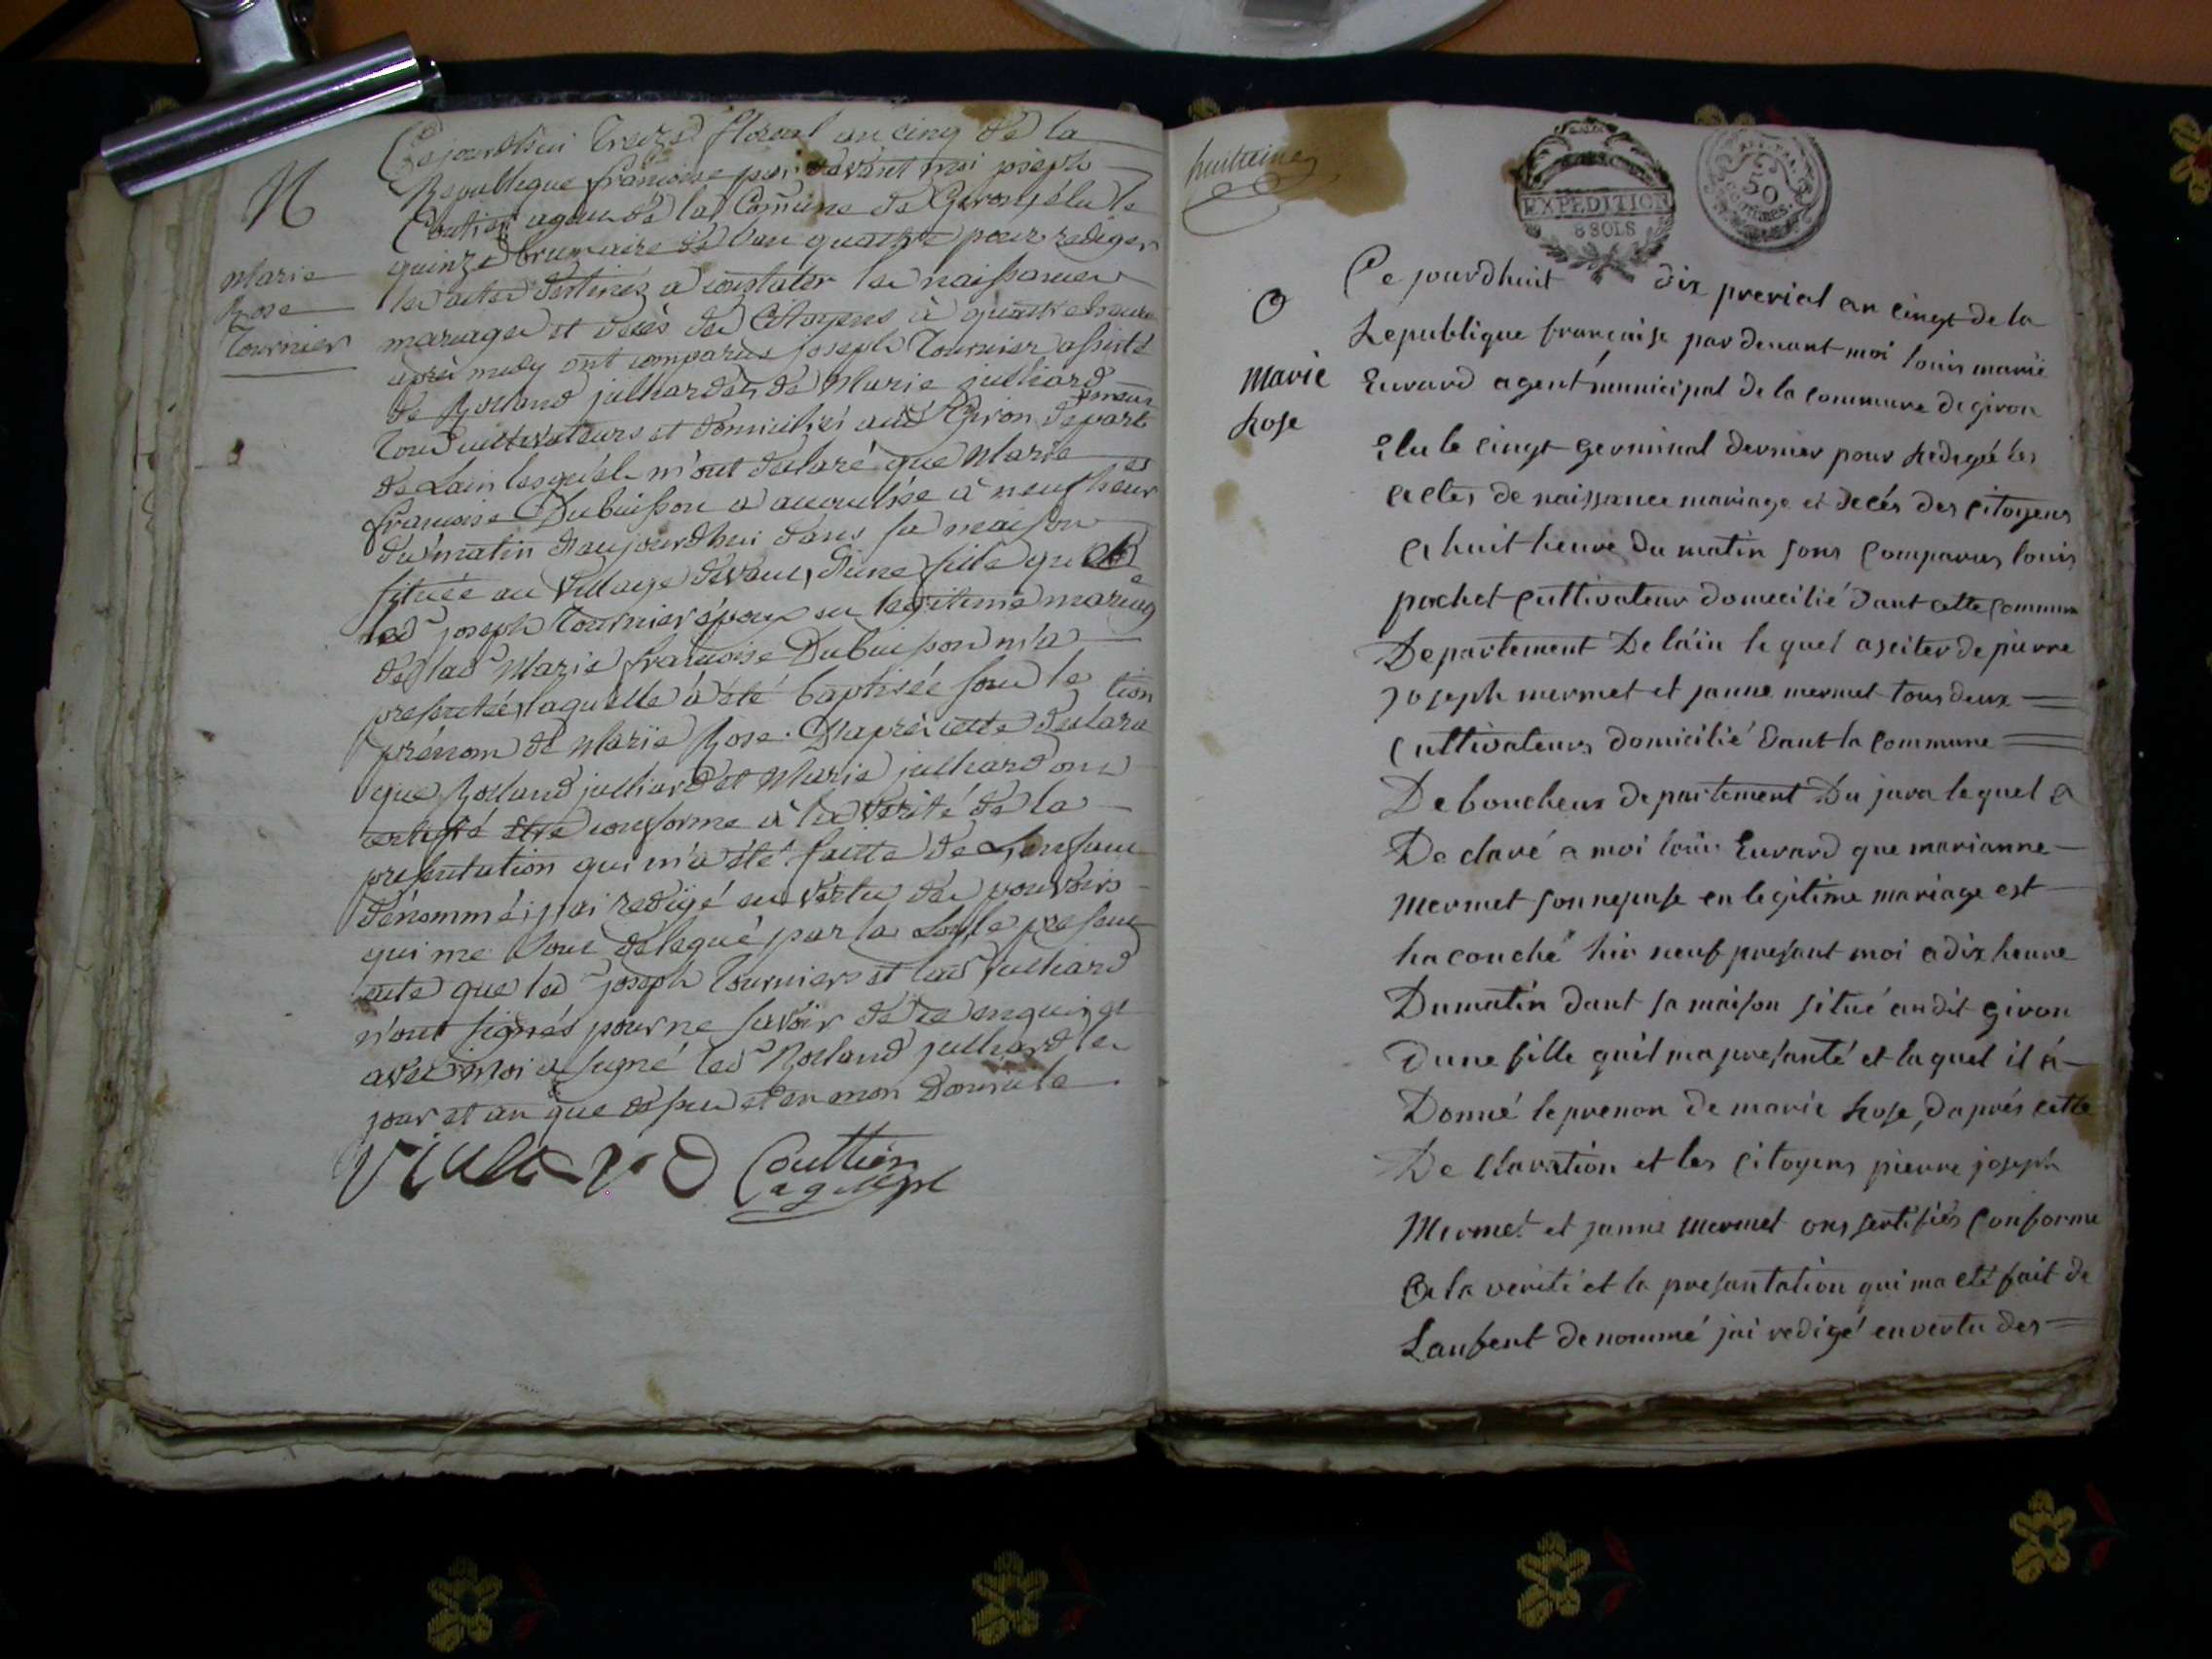 N
Marie
Rose
Tournier
Cejourdhui treize floreal an cinq de la
Republique francoise par devant moi joseph
Couttier agent de la Comune de Giron élu le
quinze brumaire de l'an quatre pour rediger
les actes destinés a constater les naissances
mariages et décès des Citoyens à quatre heures
après midy ont comparus joseph Tournier assisté
de Rolland julliard et de Marie julliard
tous cultivateurs et domiciliés aud Giron departement
de Lain lesquels m'ont declaré que Marie
francoise Dubuisson a accouchée à neuf heures
du matin d'aujourdhui dans sa maison
située au village devant, d'une fille que
led joseph Tournier époux en legitime mariage
de lad Marie francoise Dubuisson m'a
presentée, laquelle a été baptisée sous le
prénom de Marie Rose. D'après cette declaration
que Rolland julliard et Marie julliard ont
certifié être conforme à la verité de la
presentation qui m'a été faitte de Lenfant
dénommé, j'ai redigé en vertu des pouvoirs
qui me sont delegués par la Loy le present
acte que led joseph Tournier et lad julliard
n'ont signés pour ne savoir de ce enquis et
avec moi a signé led Rolland julliard les
jour et an que dessus et en mon domicile
Couttier
ag mpl
huitieme
EXPEDITION
8 SOLS
50
CENTIMES.
O
Marie
Rose
Ce jourdhuit dix prerial an cinqt de la
Republique française par devant moi louis marie
Euvrard agent municipal de la commune de giron
Elu le cinqt germinal dernier pour Redigée les
actes de naissance mariage et decés des citoyens
a huit heure du matin sons comparus louis
pochet cultivateur domecilié dant cette commune
Departement De lain le quel asciter de pierre
Joseph mermet et janne mermet tous deux =
cultivateurs domicilié dant la commune =
De boucheux departement Du jura le quel a
De claré a moi louis Euvrard que marianne
Mermet son nepuse en legitime mariage est
ha couché hir neuf presant moi a dix heure
Du matin dant sa maison situé au dit giron
dune fille quil ma presanté et la quel il á
Donné le prenon de marie Rose, daprés cette
De claration et les citoyens pierre joseph
Mermet et janne mermet ons sertifiés conforme
a la verité et la presantation qui ma eté fait de
Lanfent denommé jai redigé en vertu des =